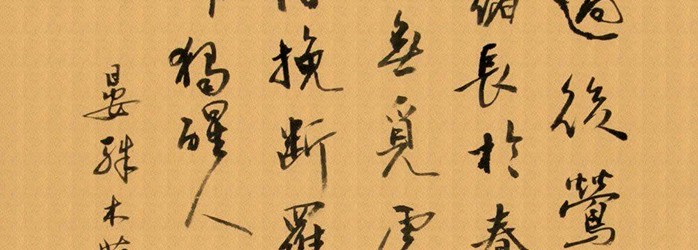 過後鶯
緒長於春
無覓處
挽斷羅
獨醒人
晏殊木